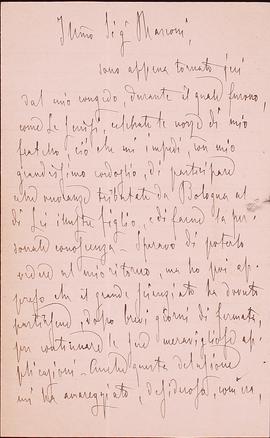 Illmo Sigr Marconi,
sono appena tornato qui
dal mio congedo, durante il quale furono,
come Le scrissi, celebrate le nozze di mio
fratello. Ciò che mi impedì, con mio
grandissimo cordoglio, di partecipare
alle onoranze tributate da Bologna al
di Lei illustre figlio, e di farne la per-
sonale conoscenza. Speravo di poterlo
vedere al mio ritorno, ma ho poi ap-
preso che il grande scienziato ha dovuto
partirsene, dopo brevi giorni di fermata,
per continuare le sue meravigliose ap-
plicazioni. Anche questa delusione
mi ha amareggiato, desideroso, com'ero,